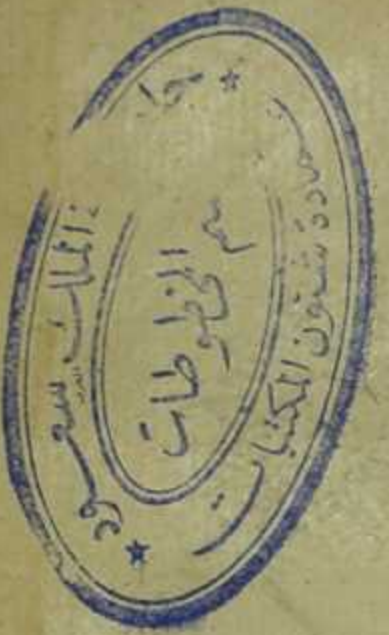 جا ـة الملك سعود
ـسم المخطوطات
عمادة شئون المكتبات